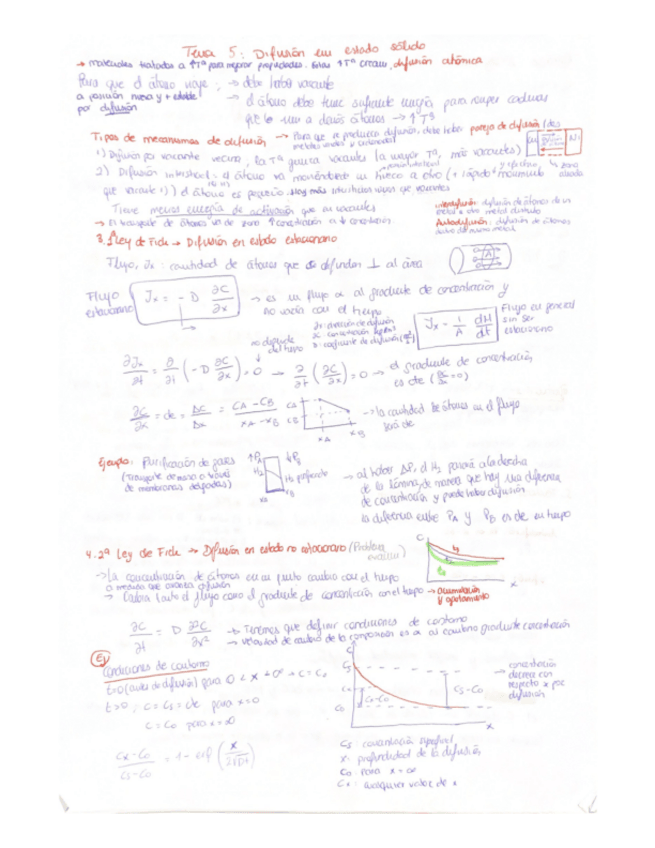 Tema 5: Difusión en estado sólido
→ materiales tratados a ↑Tª para mejorar propiedades. Estas ↑Tª crean difusión atómica
Para que el átomo viaje : → debe haber vacante
a posición nueva y + estable → el átomo debe tener suficiente energía para romper cadenas
por difusión que le unen a demás átomos → ↑Tª
Tipos de mecanismos de difusión → Para que se produzca difusión, debe haber pareja de difusión (dos
metales unidos y
1) Difusión por vacante vecina, la Tª genera vacantes (a mayor Tª, más vacantes)
2) Difusión intersticial: el átomo va moviéndose en hueco a otro (+ rápido movimiento
que vacante 1)) el átomo es pequeño. Hay más intersticios que vacantes
Tiene menos energía de activación que en vacantes
Interdifusión: difusión de átomos de un
metal a otro metal distinto
Autodifusión: difusión de átomos
→ El transporte de átomos va de zona ↑concentración a ↓concentración
3. 1ª Ley de Fick → Difusión en estado estacionario
Flujo, Jx : cantidad de átomos que se difunden ⊥ al área
A
Flujo
estacionario
Jx = - D ∂C/∂x
→ es un flujo ∝ al gradiente de concentración y
no varía con el tiempo
D: coeficiente de difusión
Jx = 1/A dM/dt
Flujo en general
sin ser
estacionario
no depende
del tiempo
∂Jx/∂t = ∂/∂t (-D ∂C/∂x) = 0 → ∂/∂t (∂C/∂x) = 0 → el gradiente de concentración
es cte (∂c/∂x = 0)
∂C/∂x = cte = ΔC/Δx = CA - CB / xA - xB
CA
CB
xA xB
→ la cantidad de átomos en el flujo
será cte
Ejemplo: Purificación de gases
(Transporte de masa a través
de membranas delgadas)
↑PA ↓PB
H2 H2 purificado
→ al haber ΔP, el H2 pasará a la derecha
de la lámina, de manera que hay una diferencia
de concentración y puede haber difusión
la diferencia entre PA y PB es cte en tiempo
4. 2ª Ley de Fick → Difusión en estado no estacionario (Problema
C
x
→ La concentración de átomos en un punto cambia con el tiempo
a medida que avanza difusión
→ Cambia tanto el flujo como el gradiente de concentración con el tiempo → acumulación
y agotamiento
∂C/∂t = D ∂²C/∂x² → Tenemos que definir condiciones de contorno
→ velocidad de cambio de la composición es ∝ al cambio gradiente concentración
Ej
Condiciones de contorno
t=0 (antes de difusión) para 0 < x < ∞ → C = C0
t>0 , C = Cs = cte para x=0
C = C0 para x = ∞
Cx - C0 / Cs - C0 = 1 - erf (x / 2√Dt)
C
Cs
Cx
C0
Cx-C0
Cs-C0
x
→ concentración
decrece con
respecto x por
difusión
Cs : concentración superficial
x : profundidad de la difusión
C0 : para x = ∞
Cx : cualquier valor de x